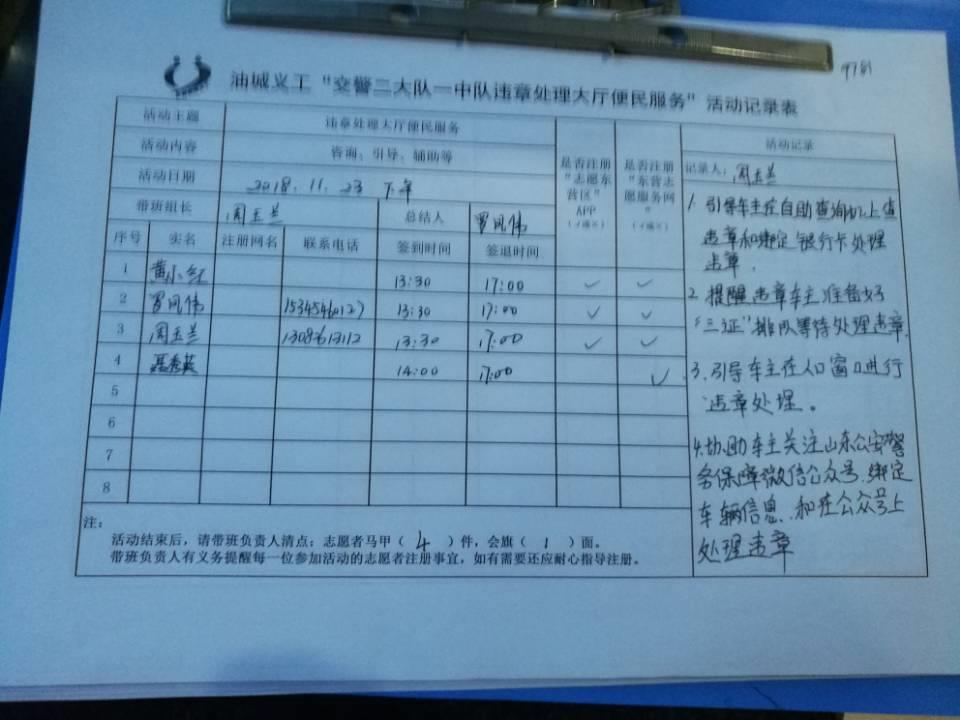 9781
油城义工“交警二大队一中队违章处理大厅便民服务”活动记录表
活动主题 违章处理大厅便民服务
活动内容 咨询、引导、辅助等
活动日期 2018.11.23 下午
带班组长 周玉兰 总结人 罗凤伟
序号 实名 注册网名 联系电话 签到时间 签退时间 是否注册“志愿东营区”APP(√或×) 是否注册“东营志愿服务网”(√或×)
1 黄小红 13:30 17:00 ✓ ✓
2 罗凤伟 13:30 17:00 ✓ ✓
3 周玉兰 13:30 17:00 ✓ ✓
4 聂秀英 14:00 17:00 ✓
5
6
7
8
注：
活动结束后，请带班负责人清点：志愿者马甲（4）件，会旗（1）面。
带班负责人有义务提醒每一位参加活动的志愿者注册事宜，如有需要还应耐心指导注册。
活动记录
记录人：周玉兰
1.引导车主在自助查询机上查
违章和绑定银行卡处理
违章.
2.提醒违章车主准备好
“三证”排队等待处理违章.
3.引导车主在人口窗口进行
违章处理。
4.协助车主关注山东公安警
务保障微信公众号.绑定
车辆信息、和在公众号上
处理违章